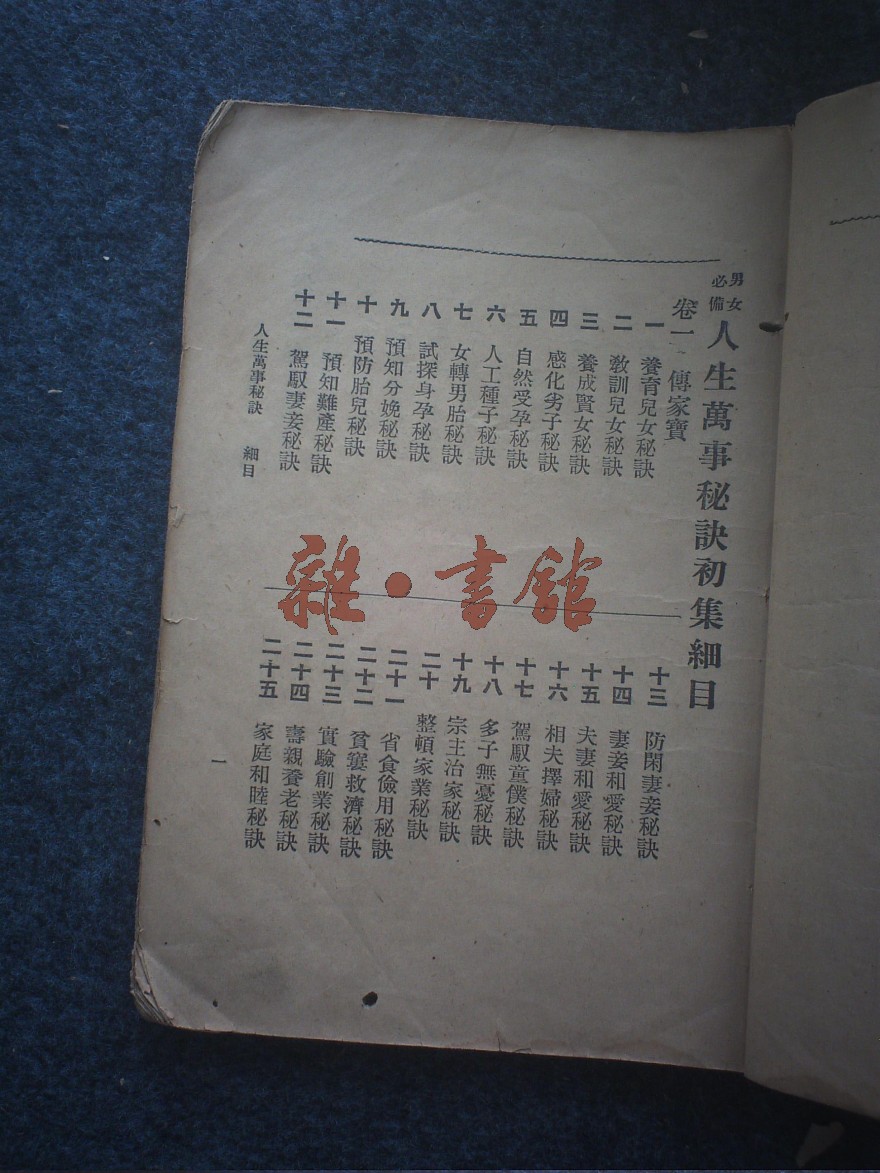 男女必備
人生萬事秘訣初集細目
卷一 傳家寶
一 養育兒女秘訣
二 教訓兒女秘訣
三 養成賢女秘訣
四 感化劣子秘訣
五 自然受孕秘訣
六 人工種子秘訣
七 女轉男胎秘訣
八 試探身孕秘訣
九 預知分娩秘訣
十 預防胎兒秘訣
十一 預知難產秘訣
十二 駕馭妻妾秘訣
十三 防閑妻妾秘訣
十四 妻妾和愛秘訣
十五 夫妻和愛秘訣
十六 相夫擇婦秘訣
十七 駕馭童僕秘訣
十八 多子無憂秘訣
十九 宗主治家秘訣
二十 整頓家業秘訣
二十一 省食儉用秘訣
二十二 貧窶救濟秘訣
二十三 實驗創業秘訣
二十四 壽親養老秘訣
二十五 家庭和睦秘訣
人生萬事秘訣 細目
一
雜·書館